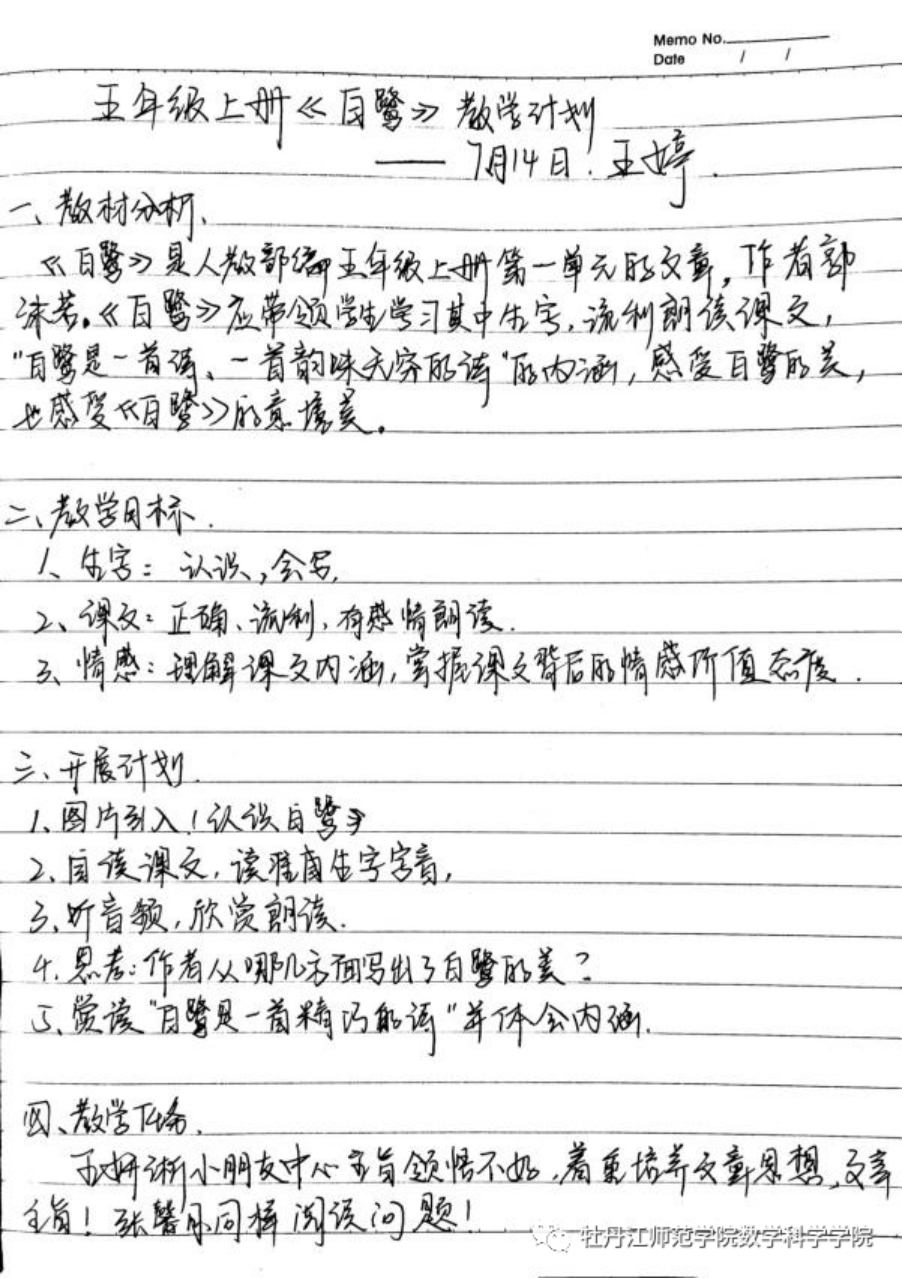 Memo No.
Date / /
五年级上册《白鹭》教学计划
—— 7月14日.王婷.
一、教材分析.
《白鹭》是人教部编五年级上册第一单元的文章,作者郭
沫若。《白鹭》应带领学生学习其中生字,流利朗读课文,
"白鹭是一首诗、一首韵味无穷的诗"的内涵,感受白鹭的美,
也感受《白鹭》的意境美。
二、教学目标.
1、生字:认识,会写.
2、课文:正确、流利、有感情朗读.
3、情感:理解课文内涵,掌握课文背后的情感价值态度.
三、开展计划.
1、图片引入!认识白鹭》
2、自读课文,读准自生字字音,
3、听音频,欣赏朗读.
4.思考:作者从哪几方面写出了白鹭的美?
5、赏读"白鹭是一首精巧的诗"并体会内涵.
四、教学任务.
王妍淅小朋友中心主旨领悟不好,着重培养文章思想,文章
主旨!张馨月同样阅读问题!
牡丹江师范学院数学科学学院